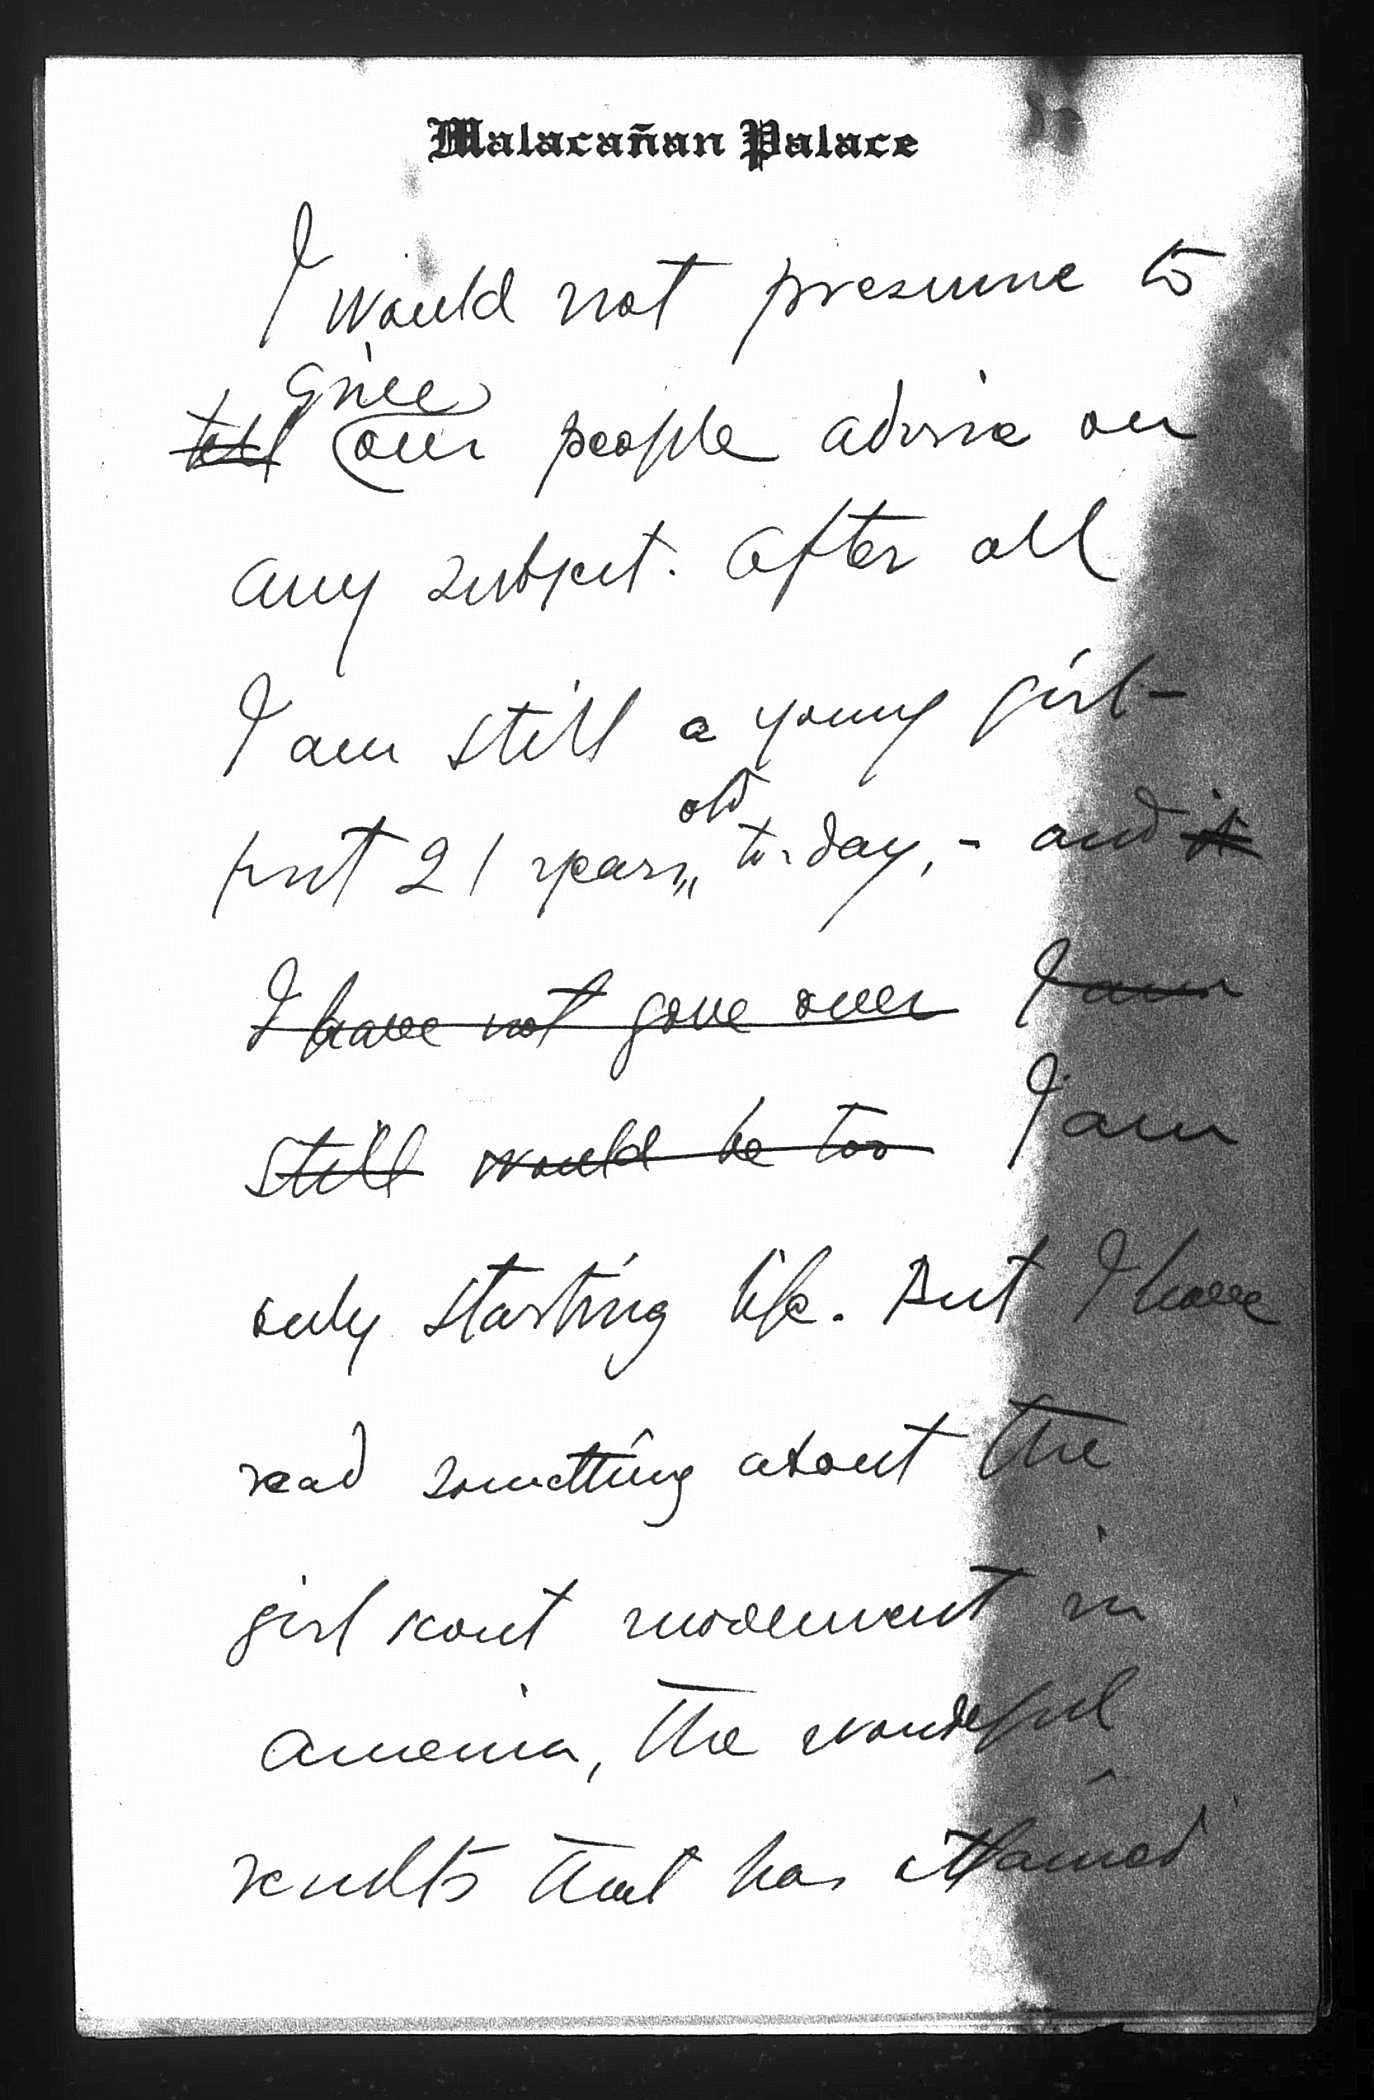 Malacañan Palace
I would not presume to
give
tell our people advice on
any subject. After all
I am still a young girl –
old
just 21 years to-day, – and it
I have not gone over I am
still would be too I am
only starting life. But I have
read something about the
girl scout movement in
America, the wonderful
results that has attained